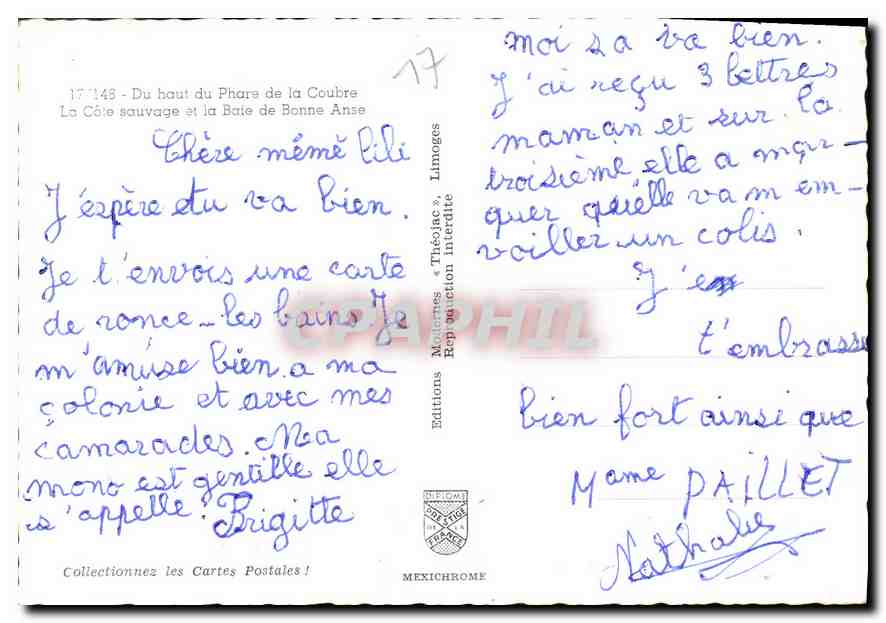 17
17 148 - Du haut du Phare de la Coubre
La Côte sauvage et la Baie de Bonne Anse
Chère mémé lili
J'espère etu va bien.
Je t'envois une carte
de ronce-les bains Je
m'amuse bien a ma
colonie et avec mes
camarades. Ma
mono est gentille elle
s'appelle Brigitte
Collectionnez les Cartes Postales !
Editions Modernes « Théojac », Limoges
Reproduction interdite
DIPLOME
PRESTIGE
DE LA
FRANCE
MEXICHROME
moi sa va bien.
J'ai reçu 3 lettres
maman et sur la
troisième elle a mar-
quer qu'elle va m em-
voiller un colis.
J'em
t'embrasse
bien fort ainsi que
Mame PAILLET
Nathalie
CPAPHIL